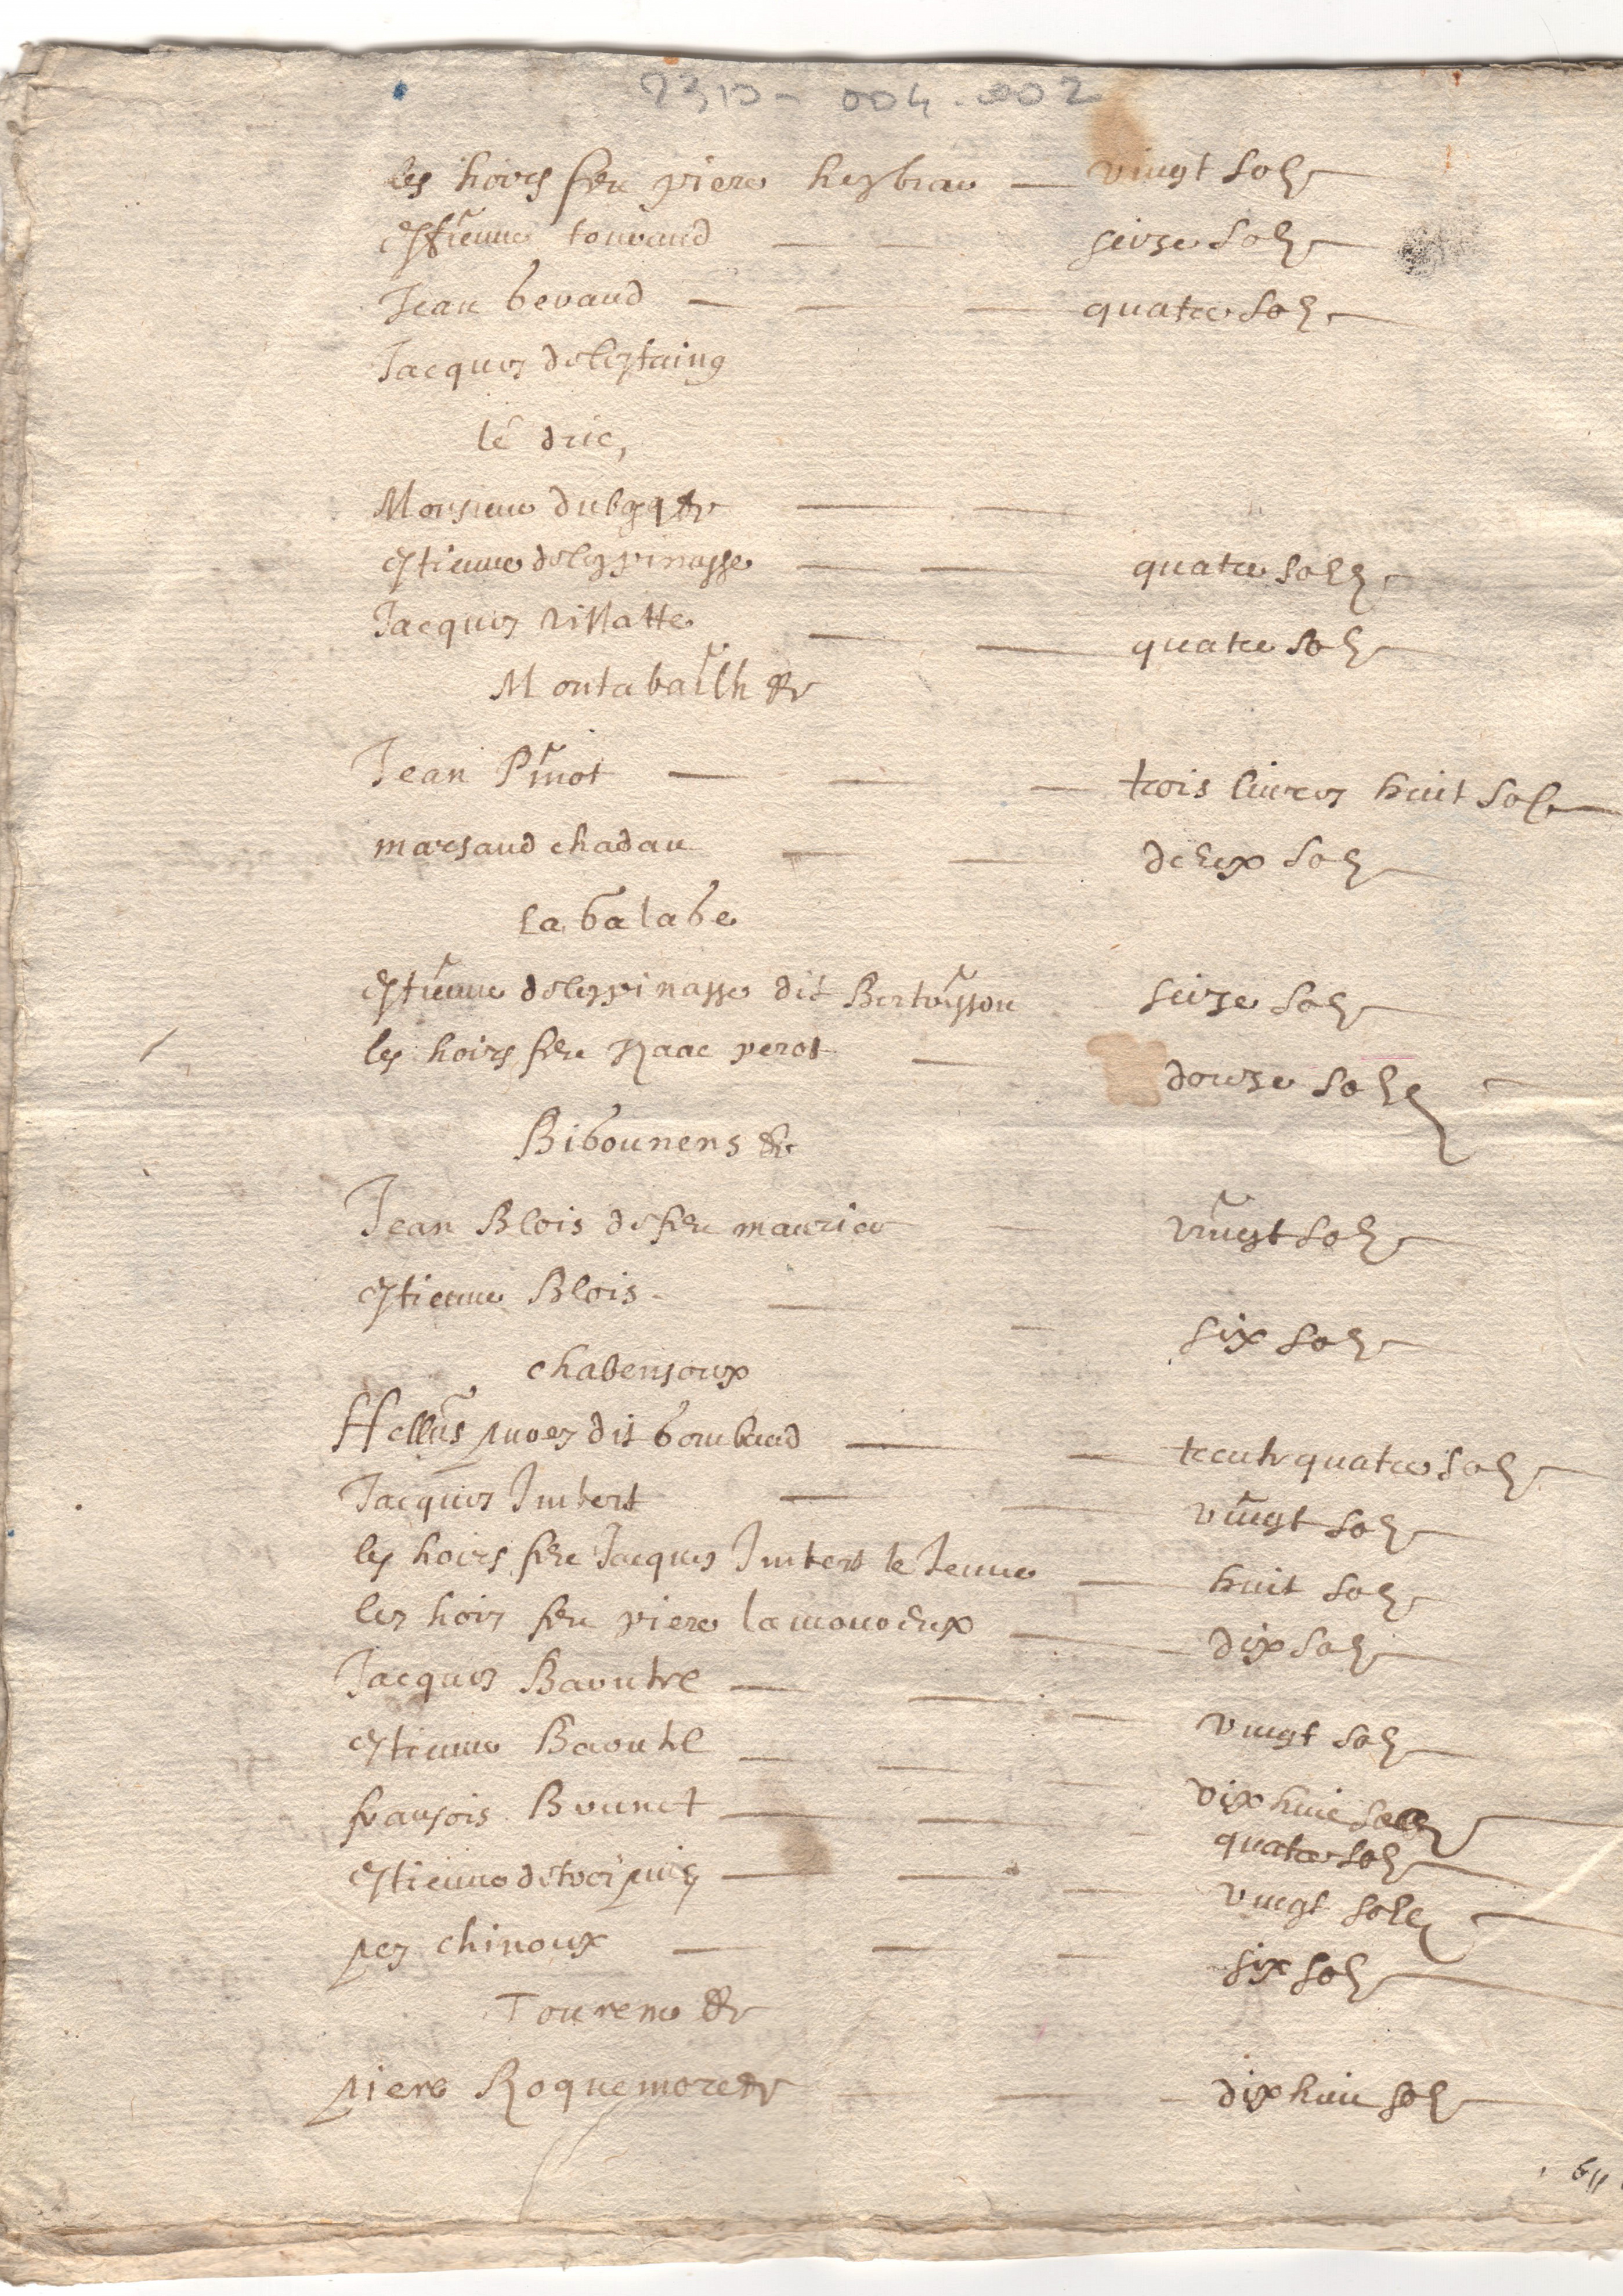 2310 - 004.002
les hoirs feu piere heybrau — vingt solz
estienne touvaud — seize solz
Jean bevaud — quatre solz
Jacques delestaing
le dric,
Monsieur
estienne delespinasse — quatre solz
Jacques Villatte — quatre solz
Montabailh &
Jean Pinot — trois livres huit solz
marsaud chadau — deux solz
La balabe
estienne delespinasse dit Bertoisson seize solz
les hoirs feu Isaac perot — douze solz
Bibounens &
Jean Blois de feu maurice vingt solz
estienne Blois — six solz
chabensoux
Hellies dit bombaud — trente quatre solz
Jacques Imbert — vingt solz
les hoirs feu Jacques Imbert le Jeune — huit solz
les hoirs feu piere lamonoeux — dix solz
Jacques — vingt solz
estienne — dix huic solz
fransois Brunet — quatre solz
estienne — vingt solz
chinoux — six solz
Tourene &
piere Roquemore — dix huic solz